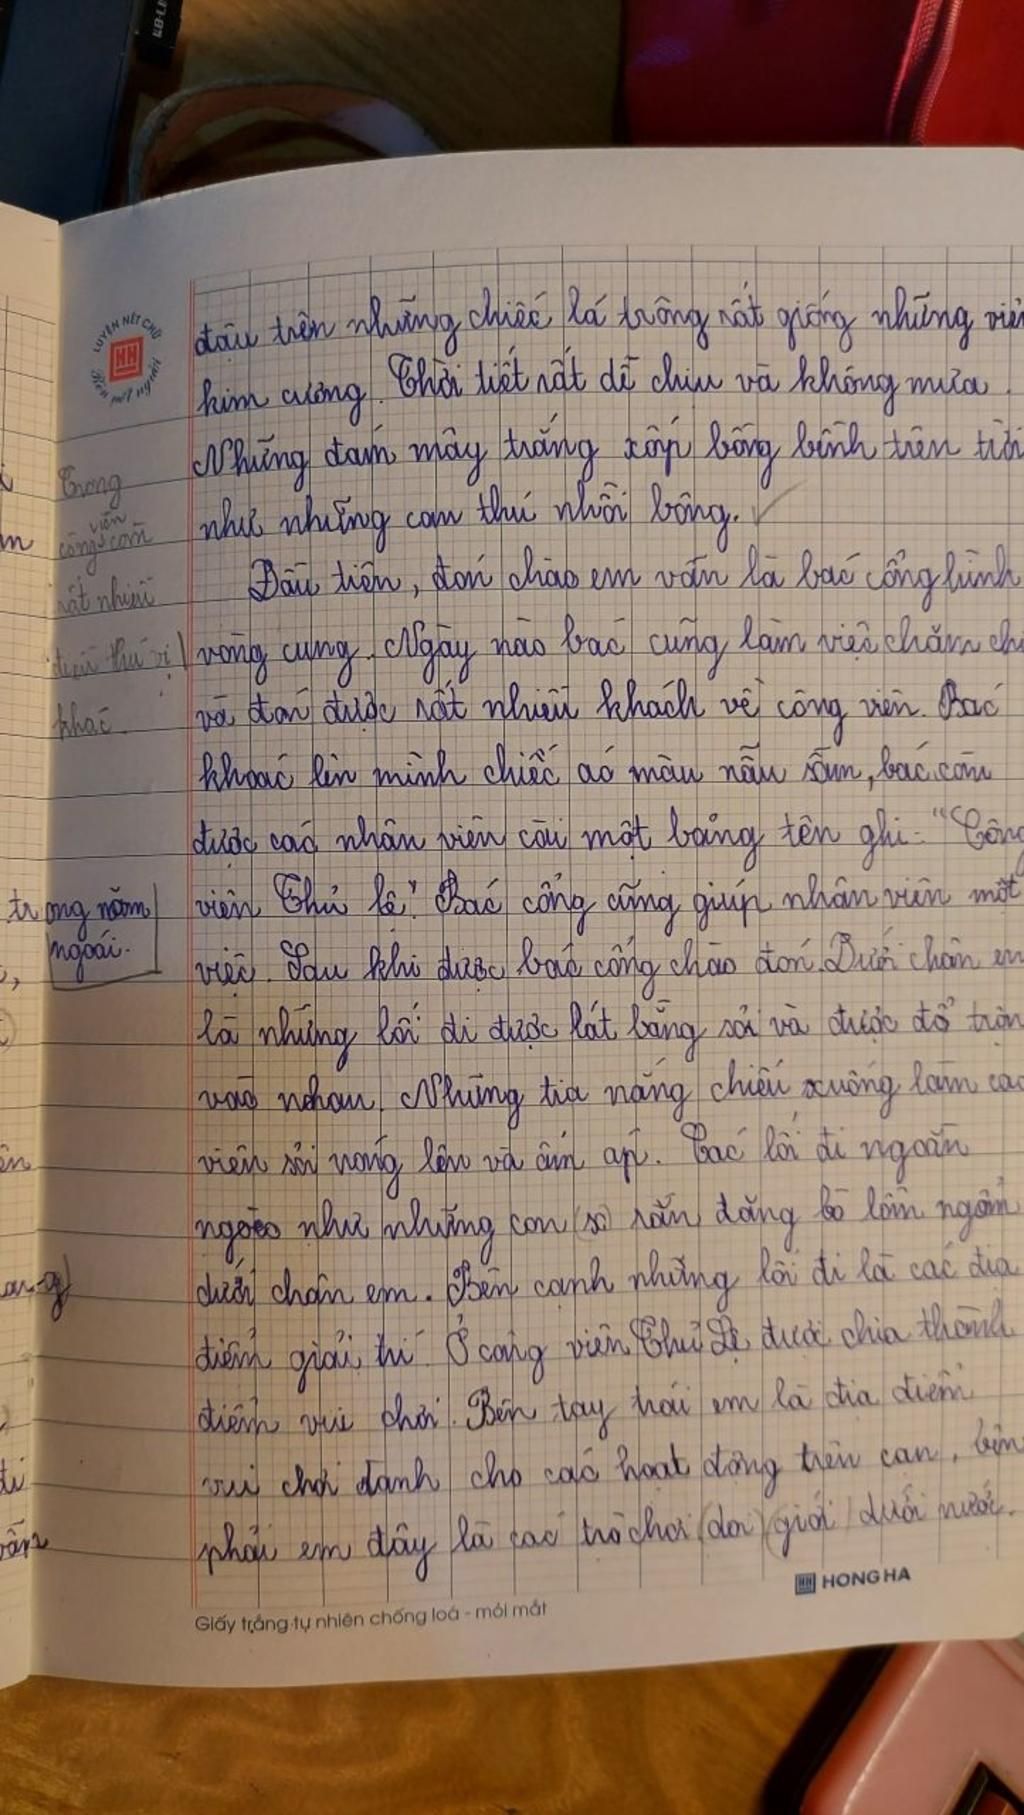 LUYỆN NÉT CHỮ
Rèn nết người
đậu trên những chiếc lá trông rất giống những viên
kim cương. Thời tiết rất dễ chịu và không mưa.
Những đám mây trắng xốp bồng bềnh trên trời
như những con thú nhồi bông.
Đầu tiên, đón chào em vẫn là bác cổng hình
vòng cung. Ngày nào bác cũng làm việc chăm ch
và đón được rất nhiều khách về công viên. Bác
khoác lên mình chiếc áo màu nâu sẫm, bác còn
được các nhân viên cài một bảng tên ghi: "Công
viên Thủ lệ". Bác cổng cũng giúp nhân viên một
việc. Sau khi được bác cổng chào đón. Dưới chân em
là những lối đi được lát bằng sỏi và được đổ trộn
vào nhau. Những tia nắng chiếu xuống làm các
viên sỏi nóng lên và ấm áp. Các lối đi ngoằn
ngoèo như những con (số) rắn đăng bò lổm ngổm
dưới chân em. Bên cạnh những lối đi là các địa
điểm giải trí. Ở công viên Thủ Lệ được chia thành
điểm vui chơi. Bên tay trái em là địa điểm
vui chơi dành cho các hoạt động trên cạn, bên
phải em đây là các trò chơi (dơi) giới dưới nước.
Trong
công viên còn
rất nhiều
điều thú vị
khác.
trong năm
ngoái.
HONG HA
Giấy trắng tự nhiên chống loá - mỏi mắt